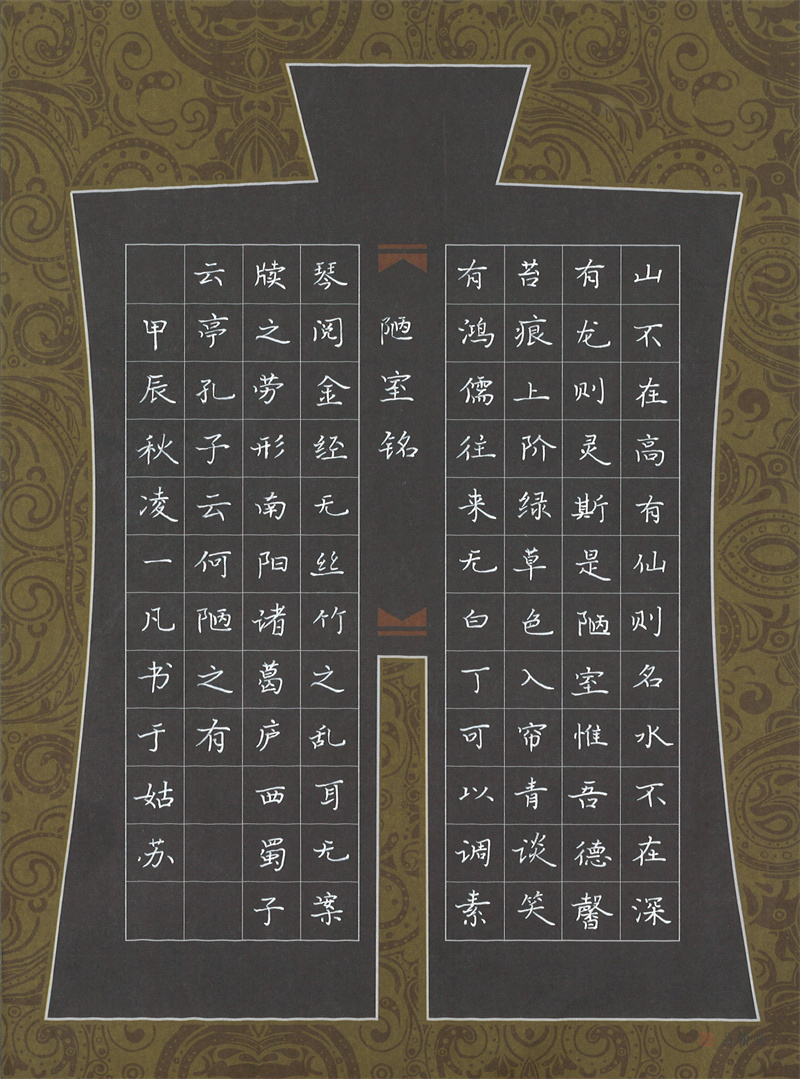 山不在高有仙则名水不在深
有龙则灵斯是陋室惟吾德馨
苔痕上阶绿草色入帘青谈笑
有鸿儒往来无白丁可以调素
陋室铭
琴阅金经无丝竹之乱耳无案
牍之劳形南阳诸葛庐西蜀子
云亭孔子云何陋之有
甲辰秋凌一凡书于姑苏